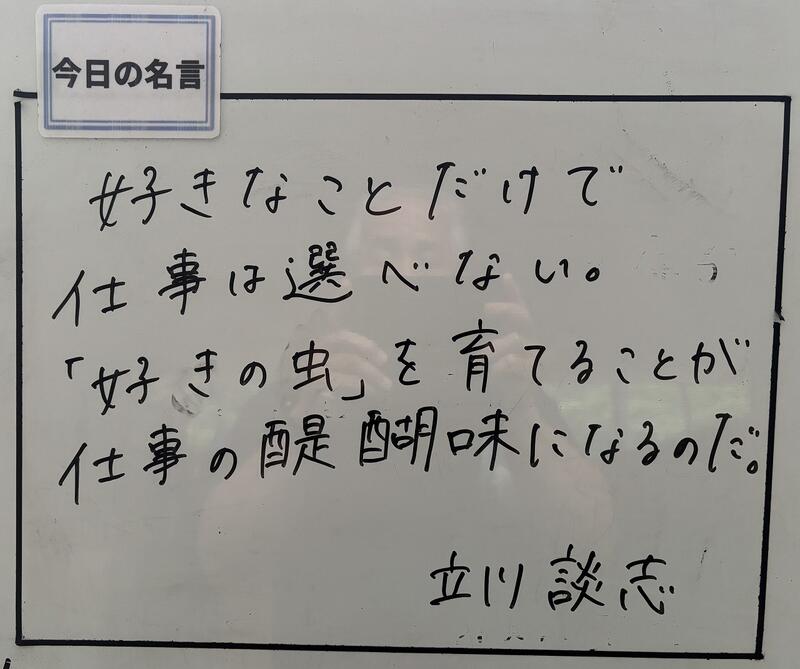 今日の名言
好きなことだけで
仕事は選べない。
「好きの虫」を育てることが
仕事の醍醐味になるのだ。
立川談志